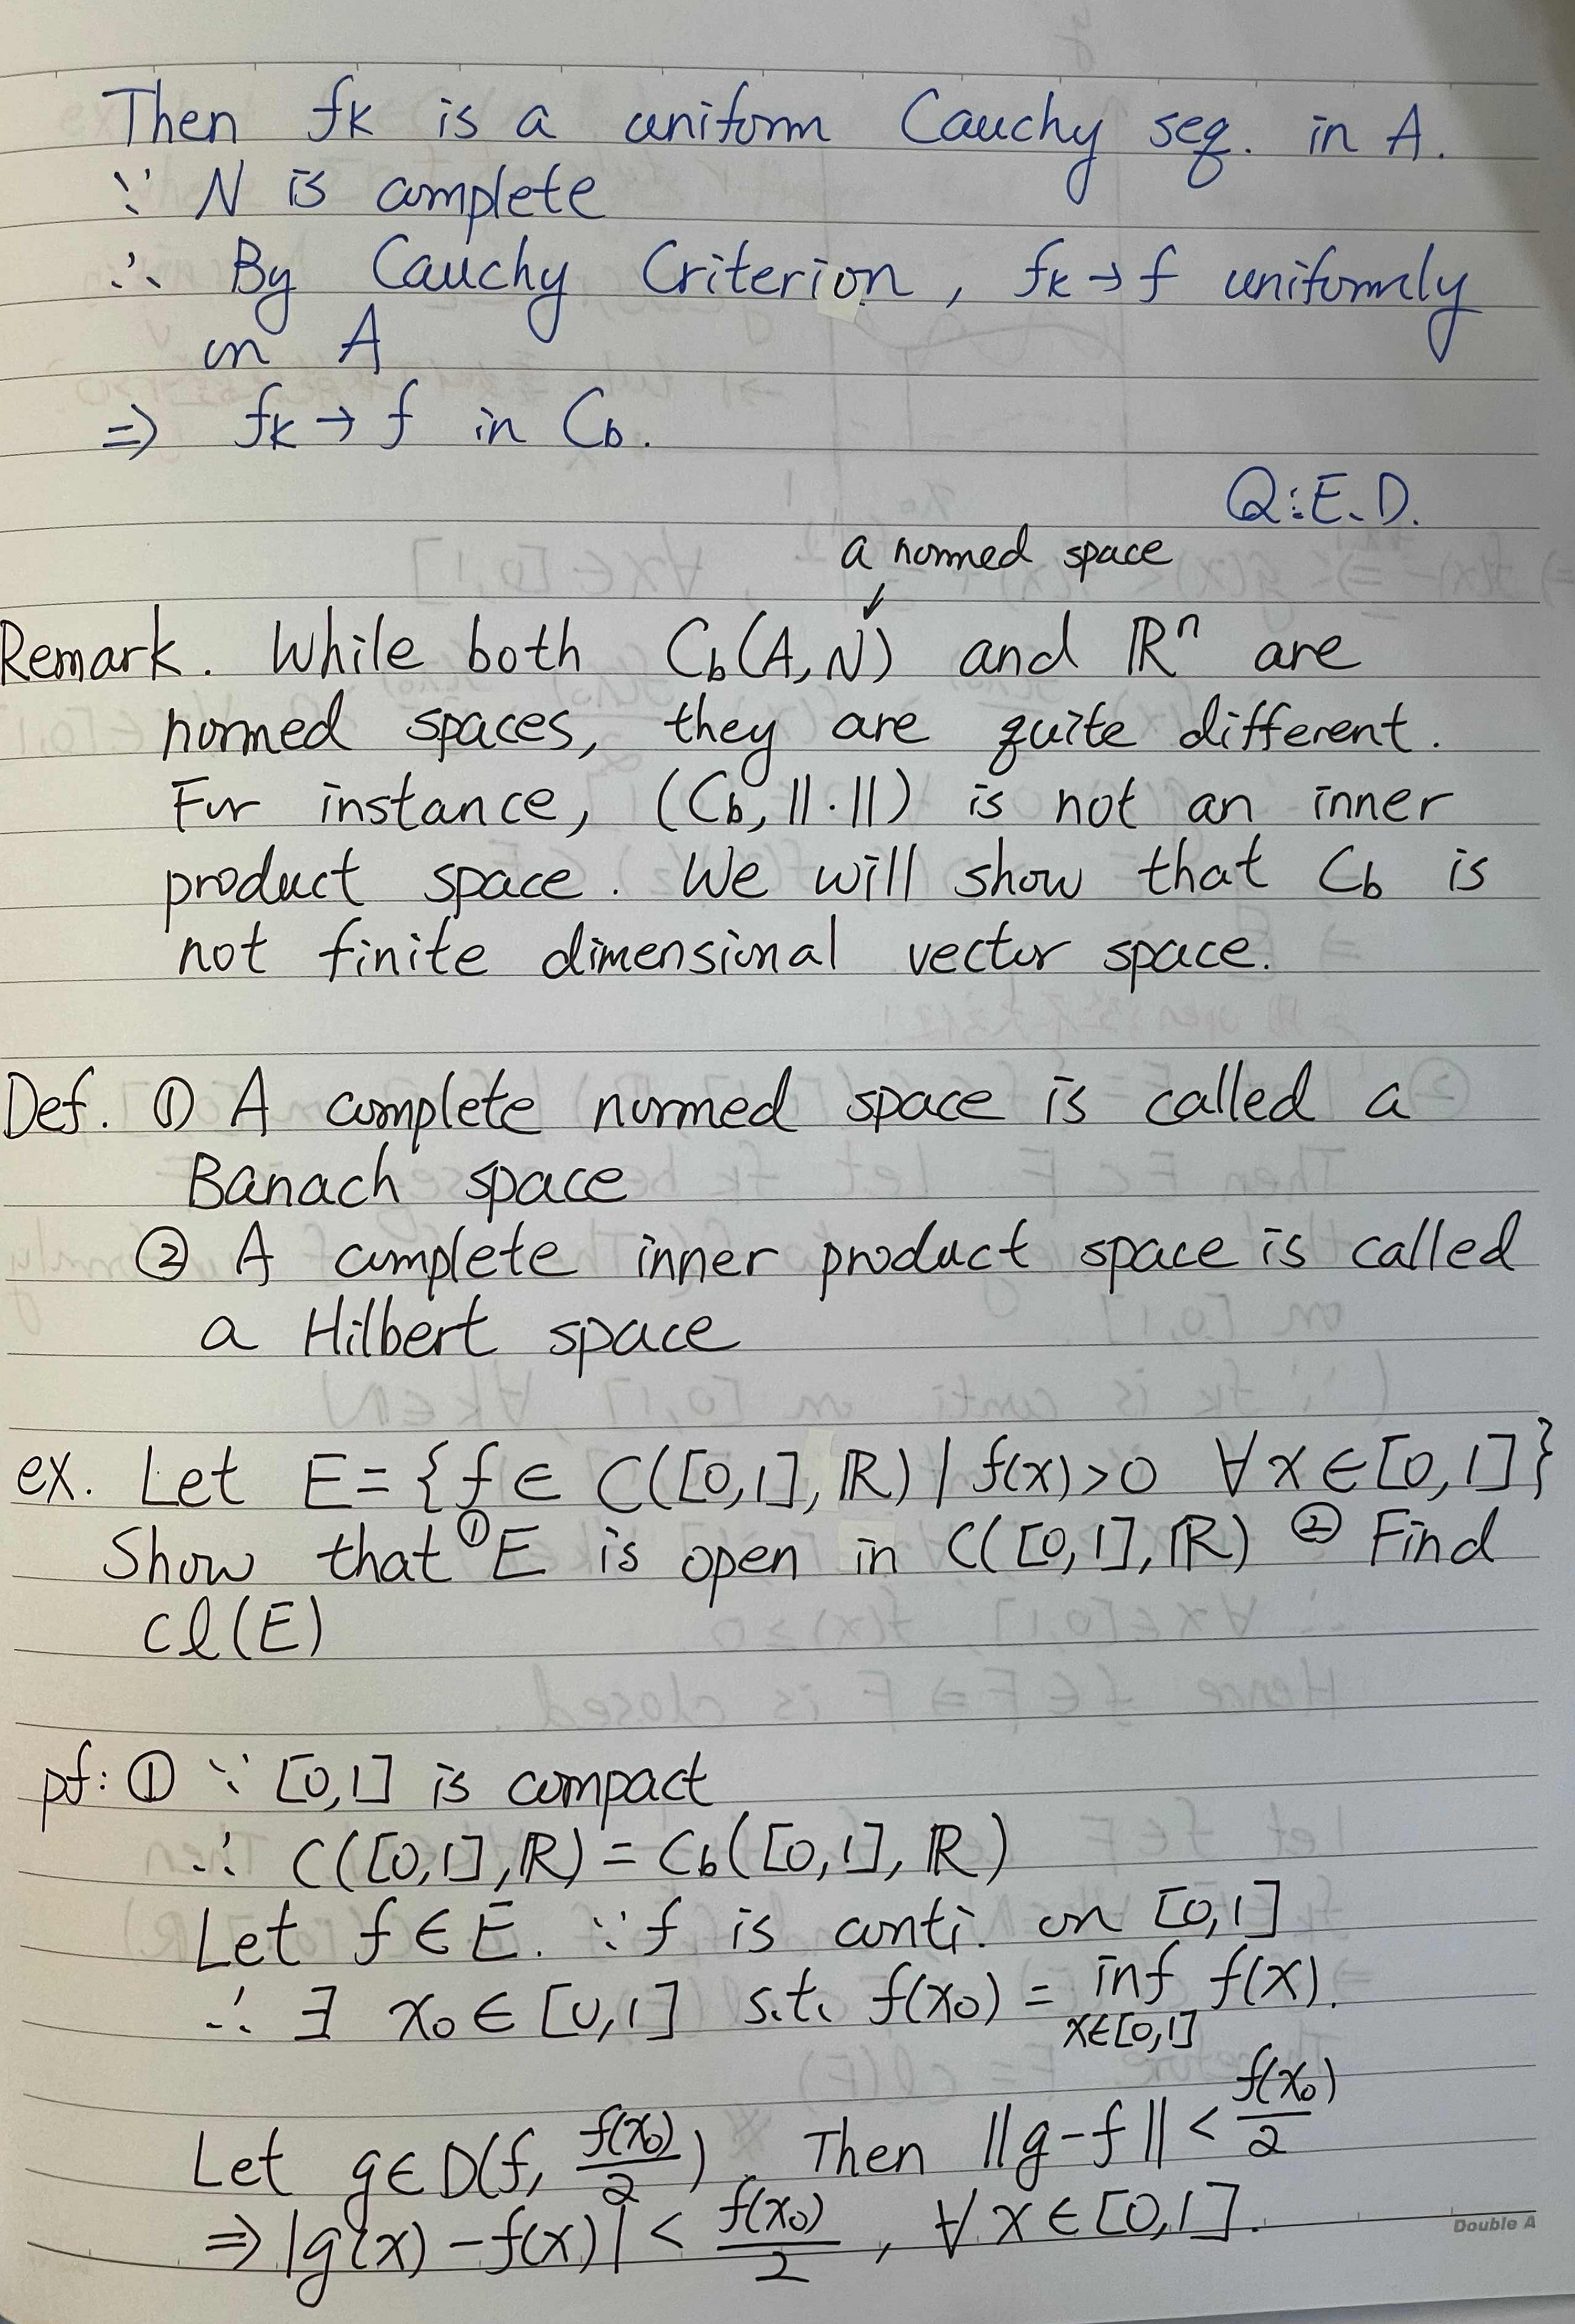 Then fk is a uniform Cauchy seq. in A.
∵ N is complete
∴ By Cauchy Criterion, fk → f uniformly
on A
⇒ fk → f in Cb.
Q.E.D.
a normed space
↓
Remark. While both Cb(A,N) and ℝⁿ are
normed spaces, they are quite different.
For instance, (Cb, ||·||) is not an inner
product space. We will show that Cb is
not finite dimensional vector space.
Def. ① A complete normed space is called a
Banach space
② A complete inner product space is called
a Hilbert space
ex. Let E = {f ∈ C([0,1], ℝ) | f(x)>0 ∀x∈[0,1]}
Show that ① E is open in C([0,1], ℝ) ② Find
cl(E)
pf: ① ∵ [0,1] is compact
∴ C([0,1], ℝ) = Cb([0,1], ℝ)
Let f ∈ E. ∵ f is conti. on [0,1]
∴ ∃ x₀ ∈ [0,1] s.t. f(x₀) = inf_{x∈[0,1]} f(x).
Let g∈D(f, f(x₀)/2). Then ||g-f|| < f(x₀)/2
⇒ |g(x) - f(x)| < f(x₀)/2, ∀x∈[0,1].
Double A